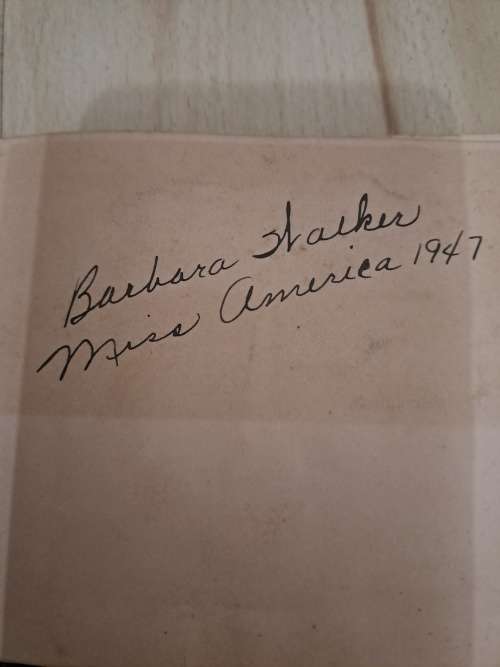 Barbara Walker
Miss America 1947